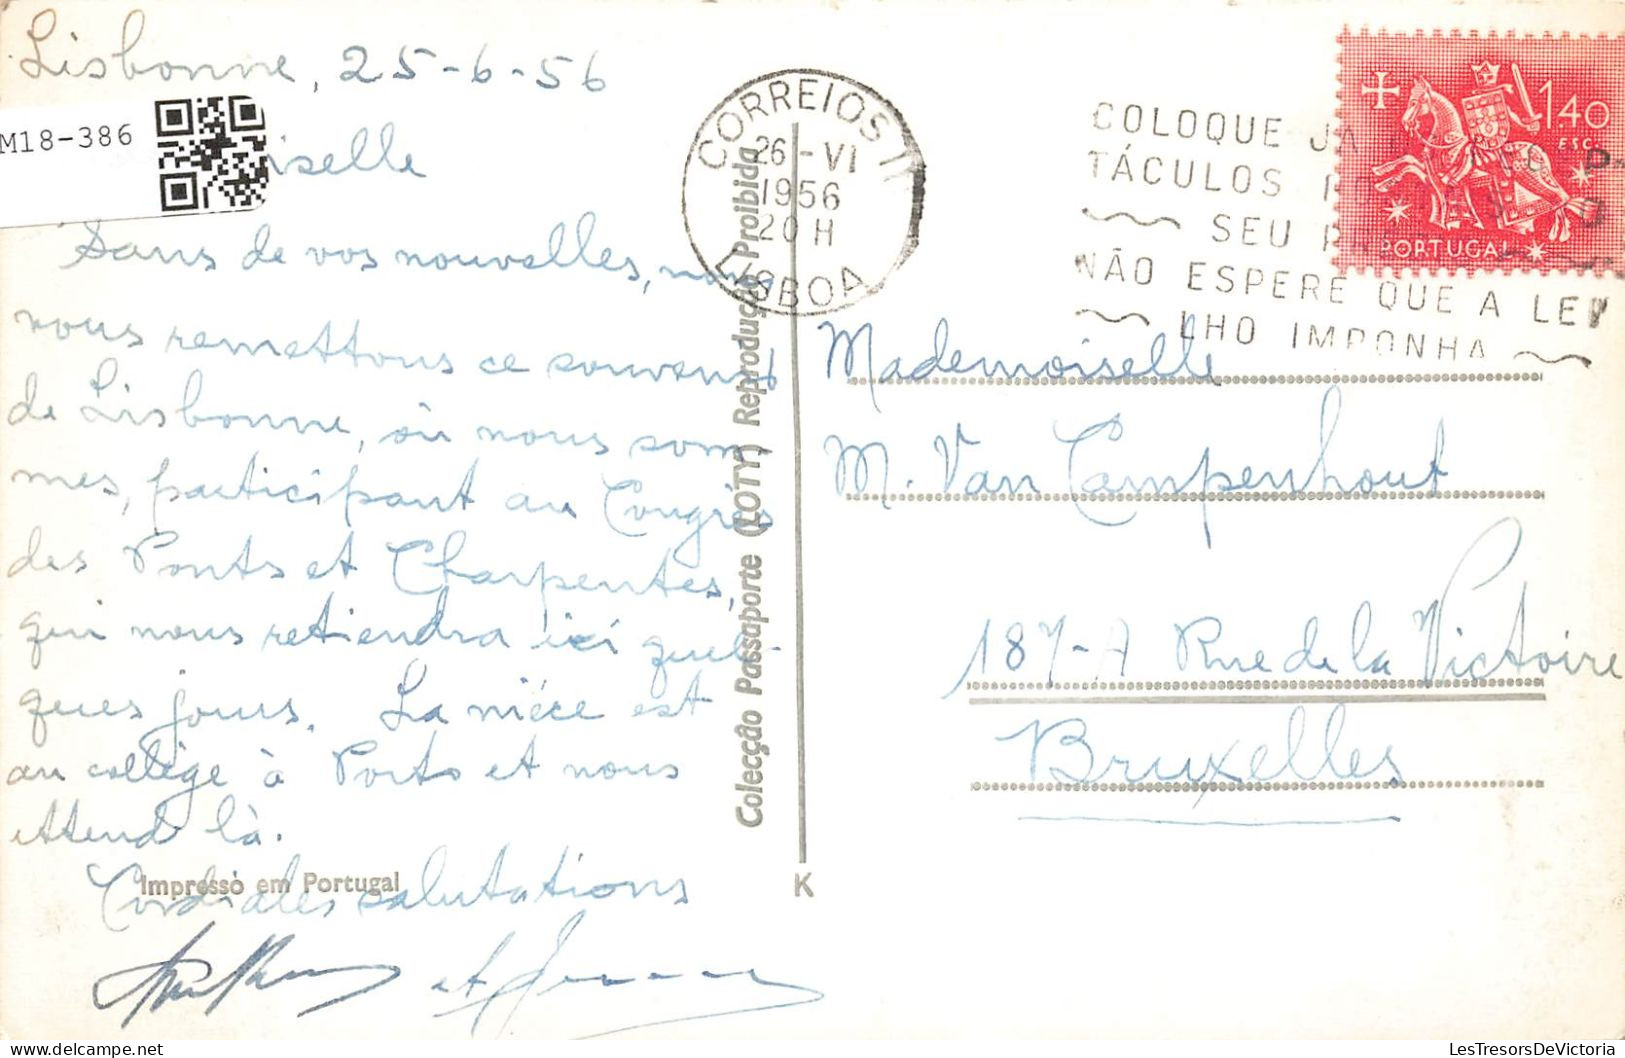 Lisbonne, 25-6-56
M18-386
iselle
Sans de vos nouvelles, nous
vous remettons ce souvenir
de Lisbonne, où nous som
mes, participant au Congrès
des Ponts et Charpentes,
qui nous retiendra ici quel-
ques jours. La nièce est
au collège à Porto et nous
attend là.
Cordiales salutations
et
Impresso em Portugal
Colecção Passaporte (LOTY) Reprodução Proibida
K
CORREIOS
26-VI
1956
20 H
LISBOA
COLOQUE JÁ
TÁCULOS
SEU
NÃO ESPERE QUE A LEI
LHO IMPONHA
1$40
ESC.
PORTUGAL
Mademoiselle
M. Van Campenhout
187-A Rue de la Victoire
Bruxelles
LesTresorsDeVictoria